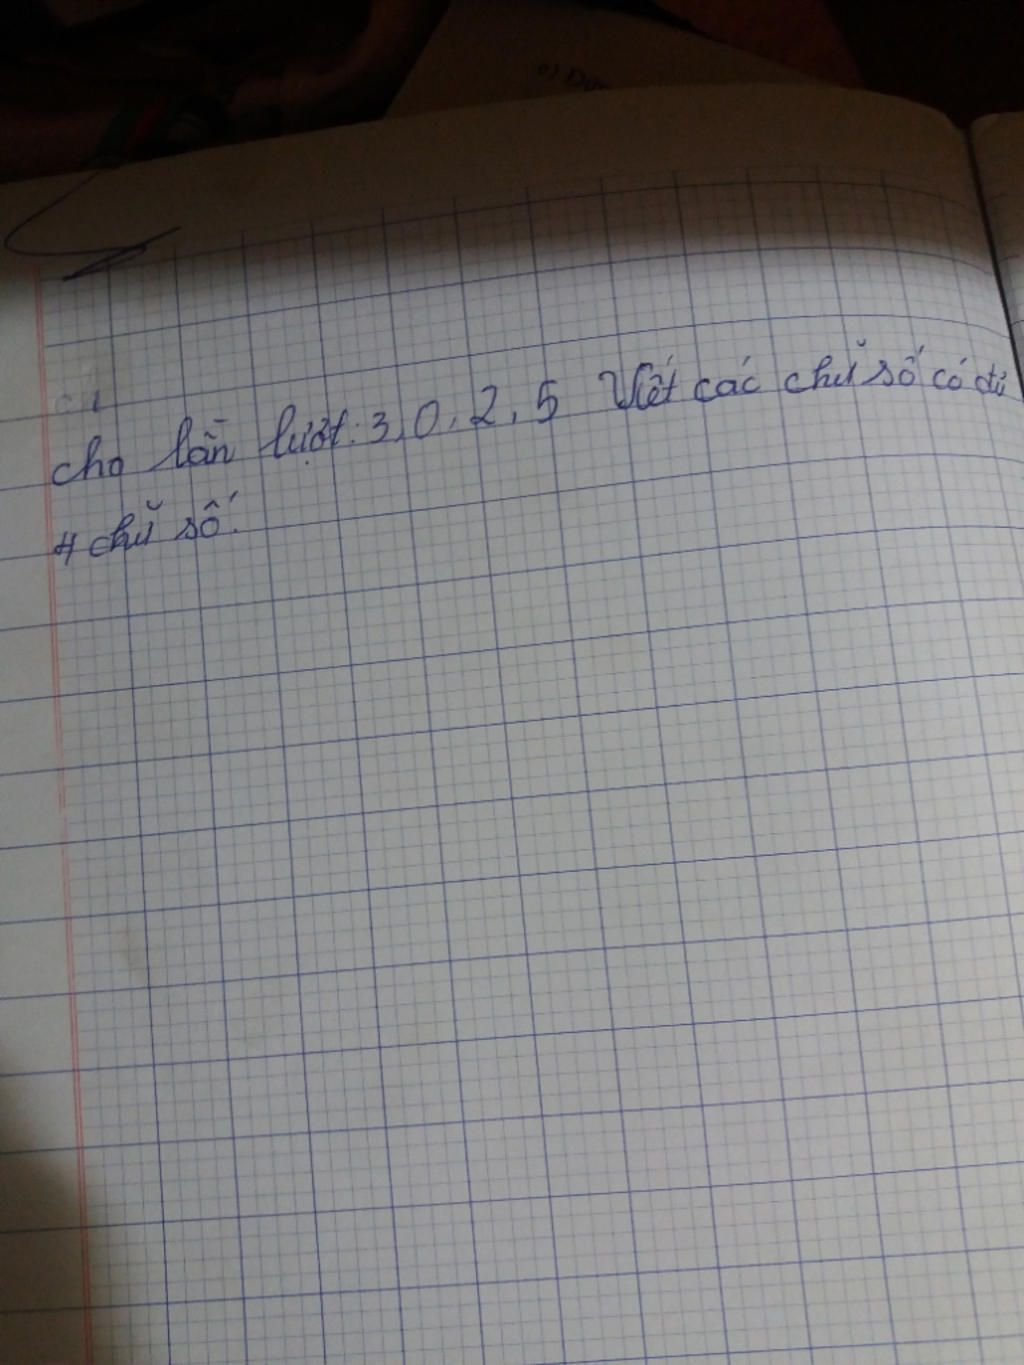 cho lần lượt: 3, 0, 2, 5 Viết các chữ số có đủ
4 chữ số.